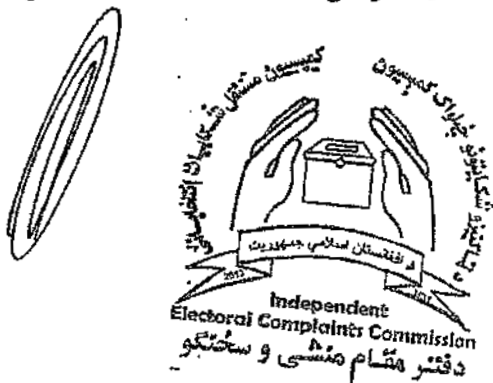 کمیسیون مستقل شکایات انتخاباتی
د ټاکنیزو شکایتونو خپلواک کمیسیون
د افغانستان اسلامي جمهوریت
2013
Independent
Electoral Complaints Commission
دفتر مقام منشی و سخنگو